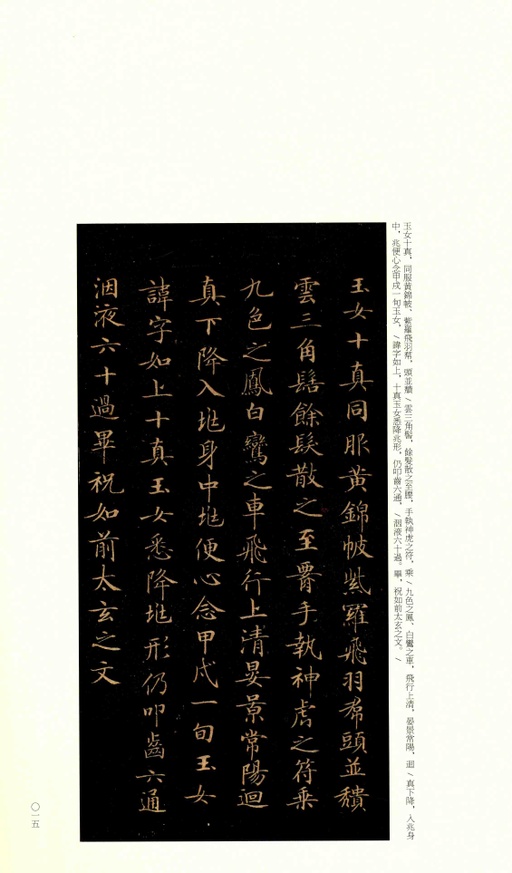 玉女十真，同服黄錦帔，紫羅飛羽帬，頭並穨／雲三角髻，餘髮散之至腰，手執神虎之符，乘／九色之鳳、白鸞之車，飛行上清，晏景常陽，迴／真下降，入兆身
中，兆便心念甲戌一旬玉女，／諱字如上，十真玉女悉降兆形，仍叩齒六通，／咽液六十過。畢，祝如前太玄之文。／
玉女十真同服黃錦帔紫羅飛羽帬頭並穨
雲三角髻餘髮散之至署手執神虎之符乗
九色之鳳白鸞之車飛行上清晏景常陽迴
真下降入兆身中兆便心念甲戌一旬玉女
諱字如上十真玉女悉降兆形仍叩齒六通
咽液六十過畢祝如前太玄之文
〇一五